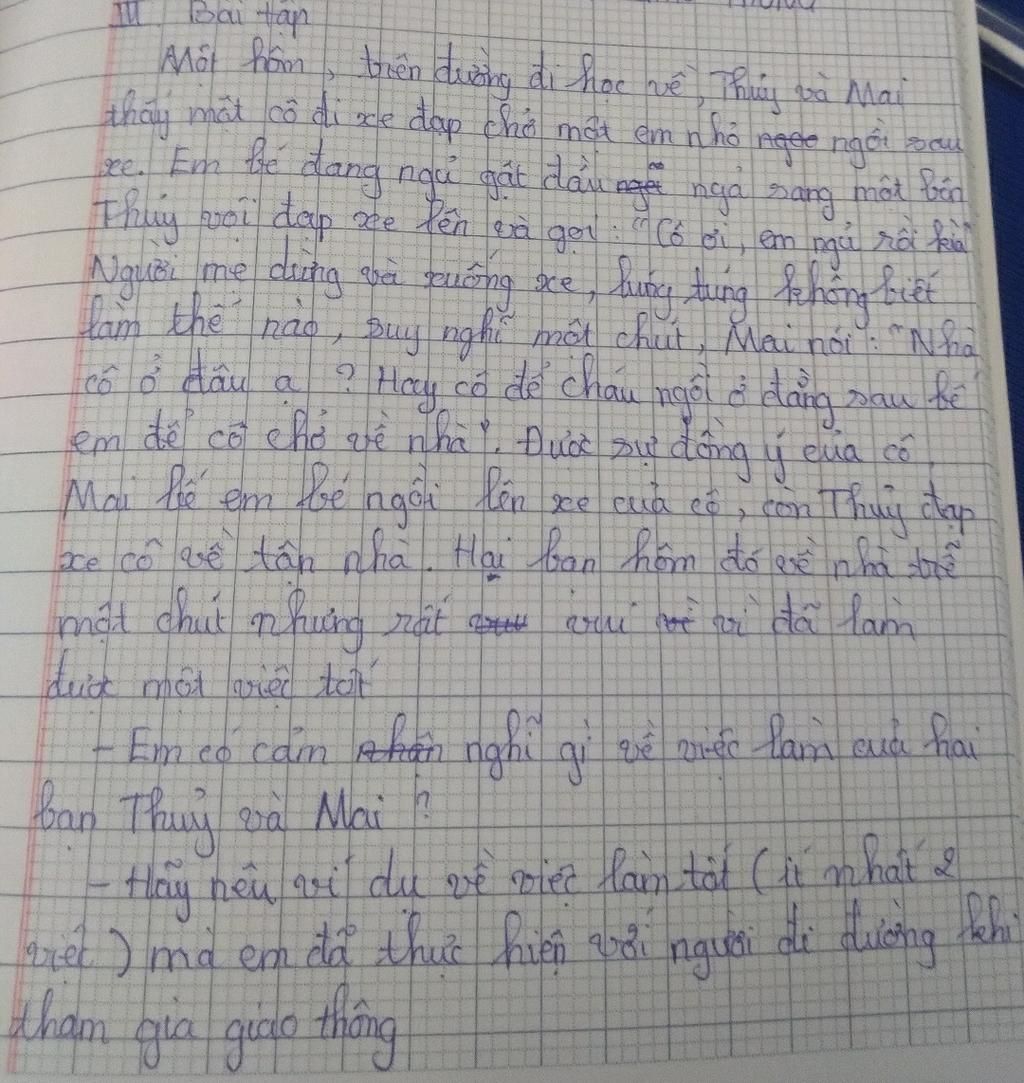 III Bài tập
Một hôm, trên đường đi học về, Thúy và Mai
thấy một cô đi xe đạp chở một em nhỏ ngoe ngồi sau
xe. Em bé đang ngủ gật đầu ngã sang một bên
Thúy vội đạp xe lên và gọi: "Cô ơi, em ngủ rồi kìa"
Người mẹ dừng và xuống xe, lúng túng không biết
làm thế nào, suy nghĩ một chút, Mai nói: "Nhà
cô ở đâu ạ? Hay cô để cháu ngồi ở đằng sau bế
em để cô chở về nhà". Được sự đồng ý của cô
Mai bế em bé ngồi lên xe của cô, còn Thúy đạp
xe cô về tận nhà. Hai bạn hôm đó về nhà trễ
một chút nhưng rất vui vì đã làm
được một việc tốt
- Em có cảm nghĩ gì về việc làm của hai
bạn Thuỷ và Mai?
- Hãy nêu ví dụ về việc làm tốt (ít nhất 2
việc) mà em đã thực hiện với người đi đường khi
tham gia giao thông